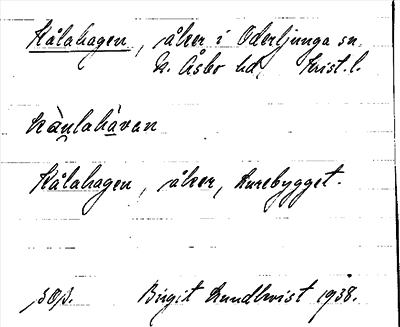 Kålahagen, åker i Oderljunga sn.
N. Åsbo hd, Krist. l.
kàulahàvan
Kålahagen, åker, Hurebygget.
Birgit Lundkvist 1938.